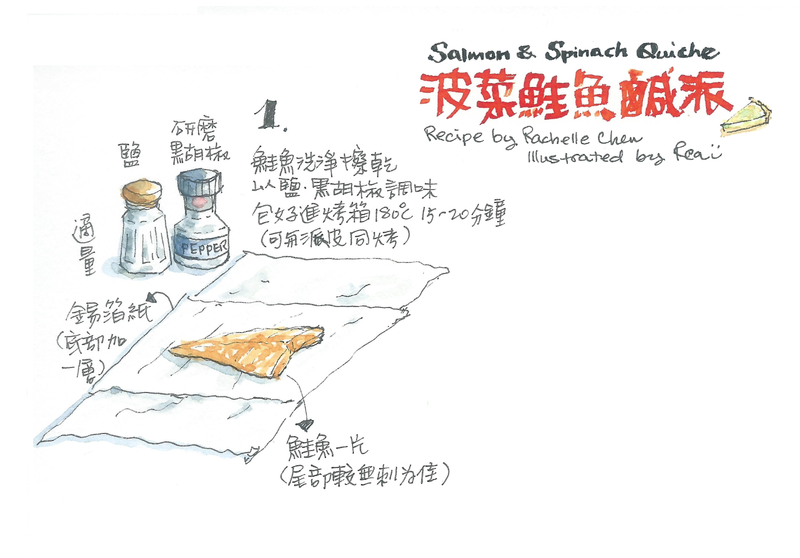 Salmon & Spinach Quiche
菠菜鮭魚鹹派
Recipe by Rachelle Chen
Illustrated by Reaü
1.
鮭魚洗淨擦乾
以鹽.黑胡椒調味
包好進烤箱180℃ 15~20分鐘
(可和派皮同烤)
鹽
研磨
黑胡椒
適量
PEPPER
錫箔紙
(底部加
一層)
鮭魚一片
(尾部較無刺為佳)